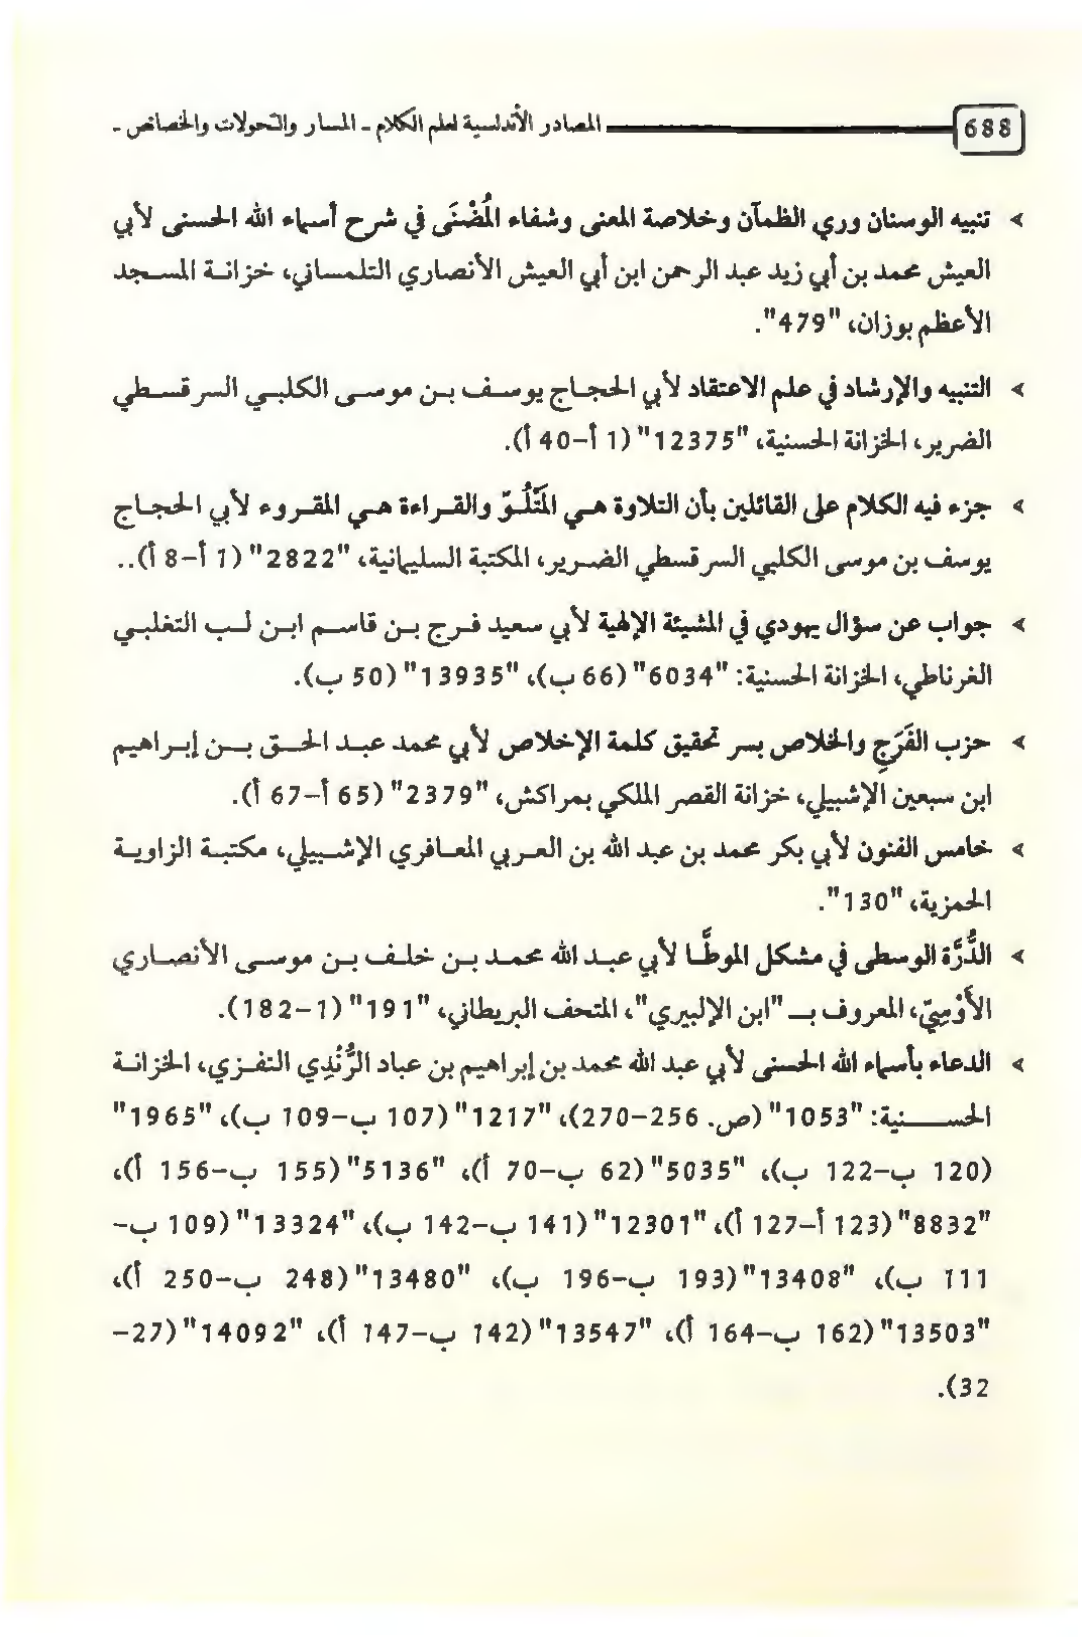 688 المصادر الأندلسية لعلم الكلام - المسار والتحولات والخصائص -
> تنبيه الوسنان وري الظمآن وخلاصة المعنى وشفاء المُضْنَى في شرح أسماء الله الحسنى لأبي
العيش محمد بن أبي زيد عبد الرحمن ابن أبي العيش الأنصاري التلمساني، خزانة المسجد
الأعظم بوزان، "479".
> التنبيه والإرشاد في علم الاعتقاد لأبي الحجاج يوسف بن موسى الكلبي السرقسطي
الضرير، الخزانة الحسنية، "12375" (1 أ-40 أ).
> جزء فيه الكلام على القائلين بأن التلاوة هي المَتْلُوّ والقراءة هي المقروء لأبي الحجاج
يوسف بن موسى الكلبي السرقسطي الضرير، المكتبة السليمانية، "2822" (1 أ-8 أ)..
> جواب عن سؤال يهودي في المشيئة الإلهية لأبي سعيد فرج بن قاسم ابن لب التغلبي
الغرناطي، الخزانة الحسنية: "6034" (66 ب)، "13935" (50 ب).
> حزب الفَرَجِ والخلاص بسر تحقيق كلمة الإخلاص لأبي محمد عبد الحق بن إبراهيم
ابن سبعين الإشبيلي، خزانة القصر الملكي بمراكش، "2379" (65 أ-67 أ).
> خامس الفنون لأبي بكر محمد بن عبد الله بن العربي المعافري الإشبيلي، مكتبة الزاوية
الحمزية، "130".
> الدُّرَّة الوسطى في مشكل الموطَّا لأبي عبد الله محمد بن خلف بن موسى الأنصاري
الأَوْسِيّ، المعروف بـ "ابن الإلبيري"، المتحف البريطاني، "191" (1-182).
> الدعاء بأسماء الله الحسنى لأبي عبد الله محمد بن إبراهيم بن عباد الرُّنْدِي النفزي، الخزانة
الحسنية: "1053" (ص. 256-270)، "1217" (107 ب-109 ب)، "1965"
(120 ب-122 ب)، "5035" (62 ب-70 أ)، "5136" (155 ب-156 أ)،
"8832" (123 أ-127 أ)، "12301" (141 ب-142 ب)، "13324" (109 ب-
111 ب)، "13408" (193 ب-196 ب)، "13480" (248 ب-250 أ)،
"13503" (162 ب-164 أ)، "13547" (142 ب-147 أ)، "14092" (27-
32).